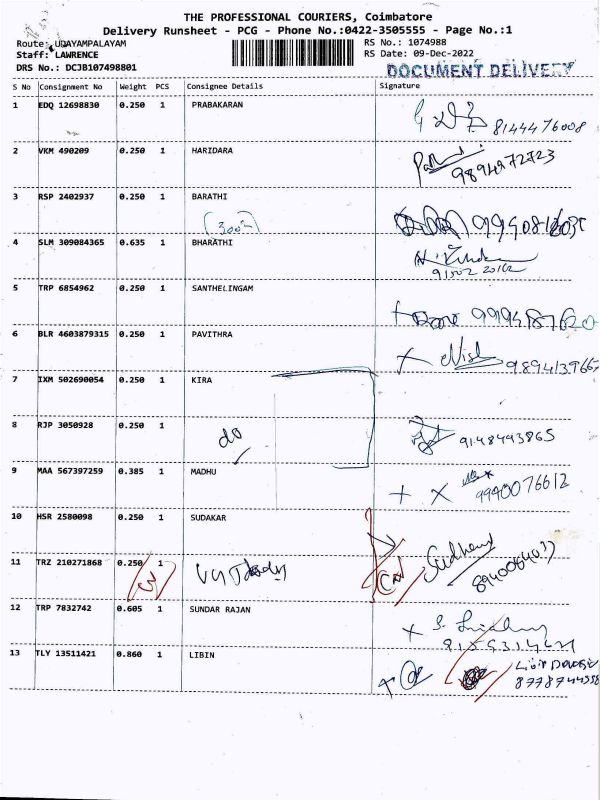 THE PROFESSIONAL COURIERS, Coimbatore
Delivery Runsheet - PCG - Phone No.:0422-3505555 - Page No.:1
Route: UDAYAMPALAYAM
Staff: LAWRENCE
DRS No.: DCJB107498801
RS No.: 1074988
RS Date: 09-Dec-2022
DOCUMENT DELIVERY
S No Consignment No Weight PCS Consignee Details Signature
1 EDQ 12698830 0.250 1 PRABAKARAN
8144476008
2 VKM 490209 0.250 1 HARIDARA
9894972723
3 RSP 2402937 0.250 1 BARATHI
4 SLM 309084365 0.635 1 BHARATHI
5 TRP 6854962 0.250 1 SANTHELINGAM
6 BLR 4603879315 0.250 1 PAVITHRA
7 IXM 502690054 0.250 1 KIRA
8 RJP 3050928 0.250 1
do
9148493865
9 MAA 567397259 0.385 1 MADHU
9940076612
10 HSR 2580098 0.250 1 SUDAKAR
11 TRZ 210271868 0.250 1
12 TRP 7832742 0.605 1 SUNDAR RAJAN
13 TLY 13511421 0.860 1 LIBIN